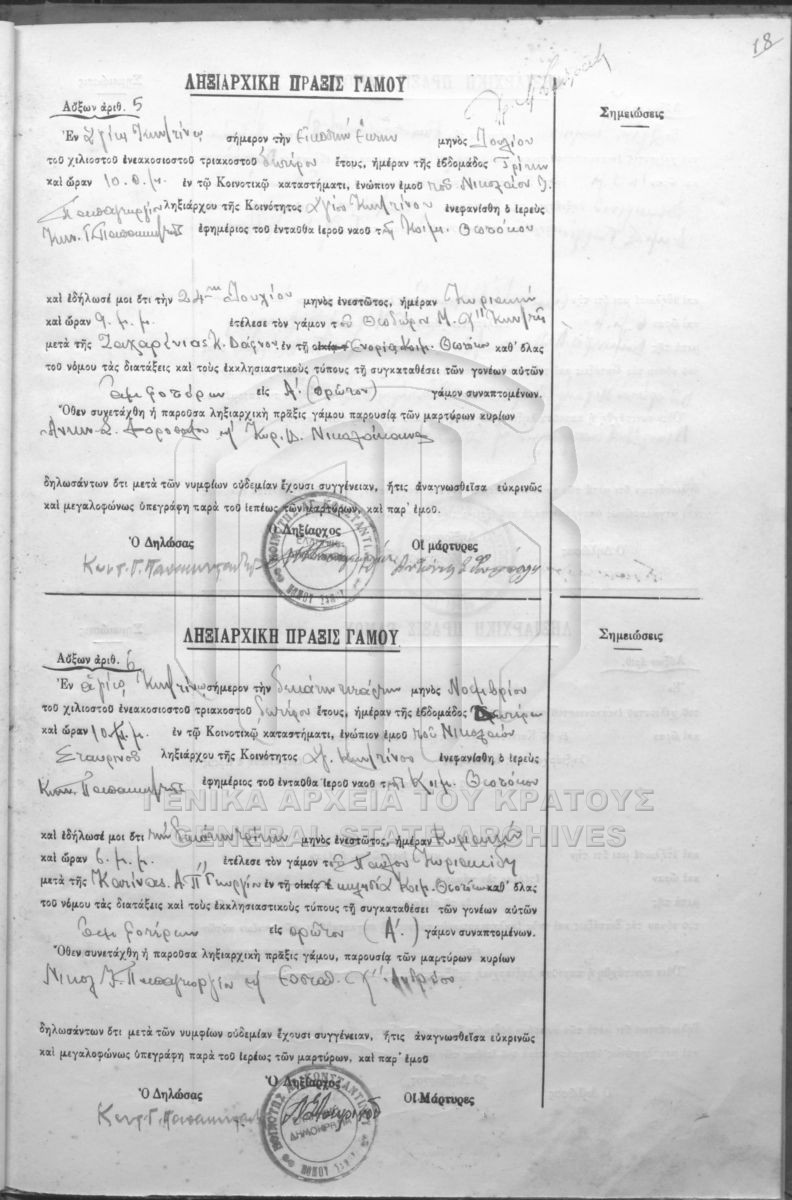 18
ΛΗΞΙΑΡΧΙΚΗ ΠΡΑΞΙΣ ΓΑΜΟΥ
Σημειώσεις
Αὔξων ἀριθ. 5
Ἐν Ἁγίῳ Κων/τίνῳ σήμερον τὴν Εἰκοστὴν Ἕκτην μηνὸς Ἰουλίου
τοῦ χιλιοστοῦ ἐνεακοσιοστοῦ τριακοστοῦ δευτέρου ἔτους, ἡμέραν τῆς ἑβδομάδος Τρίτην
καὶ ὥραν 10 π.μ. ἐν τῷ Κοινοτικῷ καταστήματι, ἐνώπιον ἐμοῦ τοῦ Νικολάου
Παπαγεωργίου ληξιάρχου τῆς Κοινότητος Ἁγίου Κων/τίνου ἐνεφανίσθη ὁ ἱερεὺς
Κων. Γ. ἐφημέριος τοῦ ἐνταῦθα ἱεροῦ ναοῦ τῆς Κοιμ. Θεοτόκου
καὶ ἐδήλωσέ μοι ὅτι τὴν 24ην Ἰουλίου μηνὸς ἐνεστῶτος, ἡμέραν Κυριακὴν
καὶ ὥραν 9 μ.μ. ἐτέλεσε τὸν γάμον τοῦ Θεοδώρου Μ.
μετὰ τῆς Ζαχαρένιας Κ. ἐν τῇ οἰκίᾳ Ἐνορίᾳ Κοιμ. Θεοτόκου καθ' ὅλας
τοῦ νόμου τὰς διατάξεις καὶ τοὺς ἐκκλησιαστικοὺς τύπους τῇ συγκαταθέσει τῶν γονέων αὐτῶν
ἀμφοτέρων εἰς Α'. (πρῶτον) γάμον συναπτομένων.
Ὅθεν συνετάχθη ἡ παροῦσα ληξιαρχικὴ πρᾶξις γάμου παρουσίᾳ τῶν μαρτύρων κυρίων
δηλωσάντων ὅτι μετὰ τῶν νυμφίων οὐδεμίαν ἔχουσι συγγένειαν, ἥτις ἀναγνωσθεῖσα εὐκρινῶς
καὶ μεγαλοφώνως ὑπεγράφη παρὰ τοῦ ἱερέως τῶν μαρτύρων, καὶ παρ' ἐμοῦ.
Ὁ Δηλώσας Ὁ Ληξίαρχος Οἱ μάρτυρες
ΛΗΞΙΑΡΧΙΚΗ ΠΡΑΞΙΣ ΓΑΜΟΥ
Σημειώσεις
Αὔξων ἀριθ. 6
Ἐν Ἁγίῳ Κων/τίνῳ σήμερον τὴν δεκάτην τετάρτην μηνὸς Νοεμβρίου
τοῦ χιλιοστοῦ ἐνεακοσιοστοῦ τριακοστοῦ δευτέρου ἔτους, ἡμέραν τῆς ἑβδομάδος
καὶ ὥραν 10 π.μ. ἐν τῷ Κοινοτικῷ καταστήματι, ἐνώπιον ἐμοῦ τοῦ Νικολάου
Σταυρινοῦ ληξιάρχου τῆς Κοινότητος Ἁγ. Κων/τίνου ἐνεφανίσθη ὁ ἱερεὺς
Κων. ἐφημέριος τοῦ ἐνταῦθα ἱεροῦ ναοῦ τῆς Κοιμ. Θεοτόκου
ΓΕΝΙΚΑ ΑΡΧΕΙΑ ΤΟΥ ΚΡΑΤΟΥΣ
GENERAL STATE ARCHIVES
καὶ ἐδήλωσέ μοι ὅτι τὴν δεκάτην τρίτην μηνὸς ἐνεστῶτος, ἡμέραν Κυριακὴν
καὶ ὥραν 6 μ.μ. ἐτέλεσε τὸν γάμον τοῦ Παύλου Κυριακίδη
μετὰ τῆς Κατίνας ἐν τῇ οἰκίᾳ ἐκκλησίᾳ Κοιμ. Θεοτόκου καθ' ὅλας
τοῦ νόμου τὰς διατάξεις καὶ τοὺς ἐκκλησιαστικοὺς τύπους τῇ συγκαταθέσει τῶν γονέων αὐτῶν
ἀμφοτέρων εἰς πρῶτον (Α'.) γάμον συναπτομένων.
Ὅθεν συνετάχθη ἡ παροῦσα ληξιαρχικὴ πρᾶξις γάμου, παρουσίᾳ τῶν μαρτύρων κυρίων
Νικολ. Παπαγεωργίου
δηλωσάντων ὅτι μετὰ τῶν νυμφίων οὐδεμίαν ἔχουσι συγγένειαν, ἥτις ἀναγνωσθεῖσα εὐκρινῶς
καὶ μεγαλοφώνως ὑπεγράφη παρὰ τοῦ ἱερέως τῶν μαρτύρων, καὶ παρ' ἐμοῦ
Ὁ Δηλώσας Ὁ Ληξίαρχος Οἱ Μάρτυρες